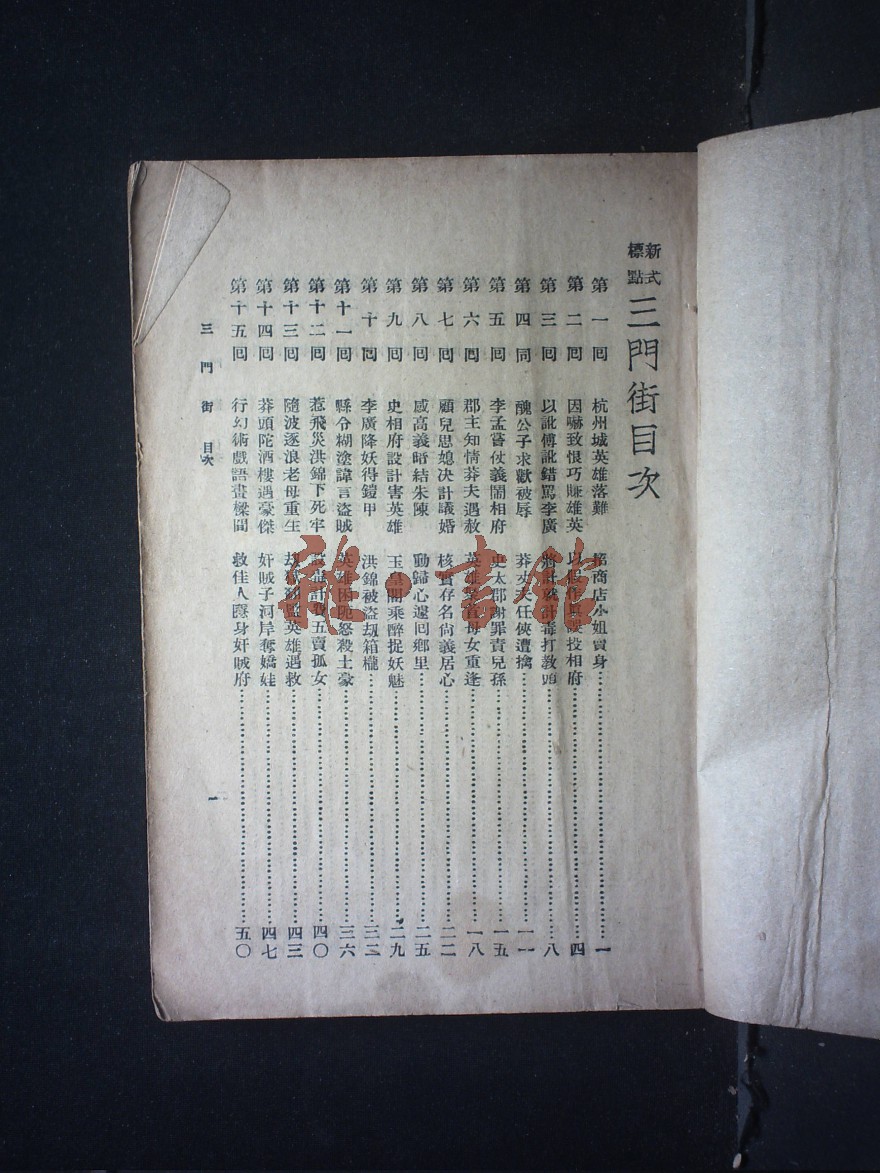 新式標點 三門街目次
第一回 杭州城英雄落難 商店小姐賣身 一
第二回 因嚇致恨巧賺雄英 以 投相府 四
第三回 以訛傅訛錯罵李廣 將計就計毒打教師 八
第四同 醜公子求歡被辱 莽丈夫任俠遭擒 一一
第五回 李孟嘗仗義鬧相府 史太郡謝罪責兒孫 一五
第六回 郡主知情莽夫遇赦 英雄 母女重逢 一八
第七回 顧兒思媳決計議婚 核實存名尙義居心 二二
第八回 感高義暗結朱陳 動歸心遽回鄉里 二五
第九回 史相府設計害英雄 玉皇閣乘醉捉妖魅 二九
第十回 李廣降妖得鎧甲 洪錦被盜刼箱櫳 三二
第十一回 縣令糊塗諱言盜賊 英雄困阨怒殺土豪 三六
第十二回 惹飛災洪錦下死牢 設 計 五賣孤女 四〇
第十三回 隨波逐浪老母重生 刼 監英雄遇救 四三
第十四回 莽頭陀酒樓遇豪傑 奸賊子河岸奪嬌娃 四七
第十五回 行幻術戲語畫樑間 救佳人隱身奸賊府 五〇
三門街 目次
一
雅·書館